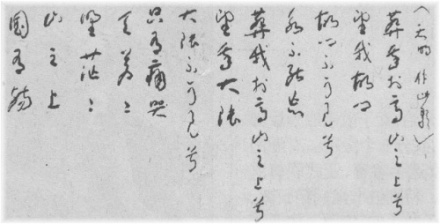 （天明作此歌）
葬我於高山之上兮
望我故鄉
故鄉不可見兮
永不能忘
葬我於高山之上兮
望我大陸
大陸不可見兮
只有痛哭
天蒼々
野茫々
山之上
國有殤